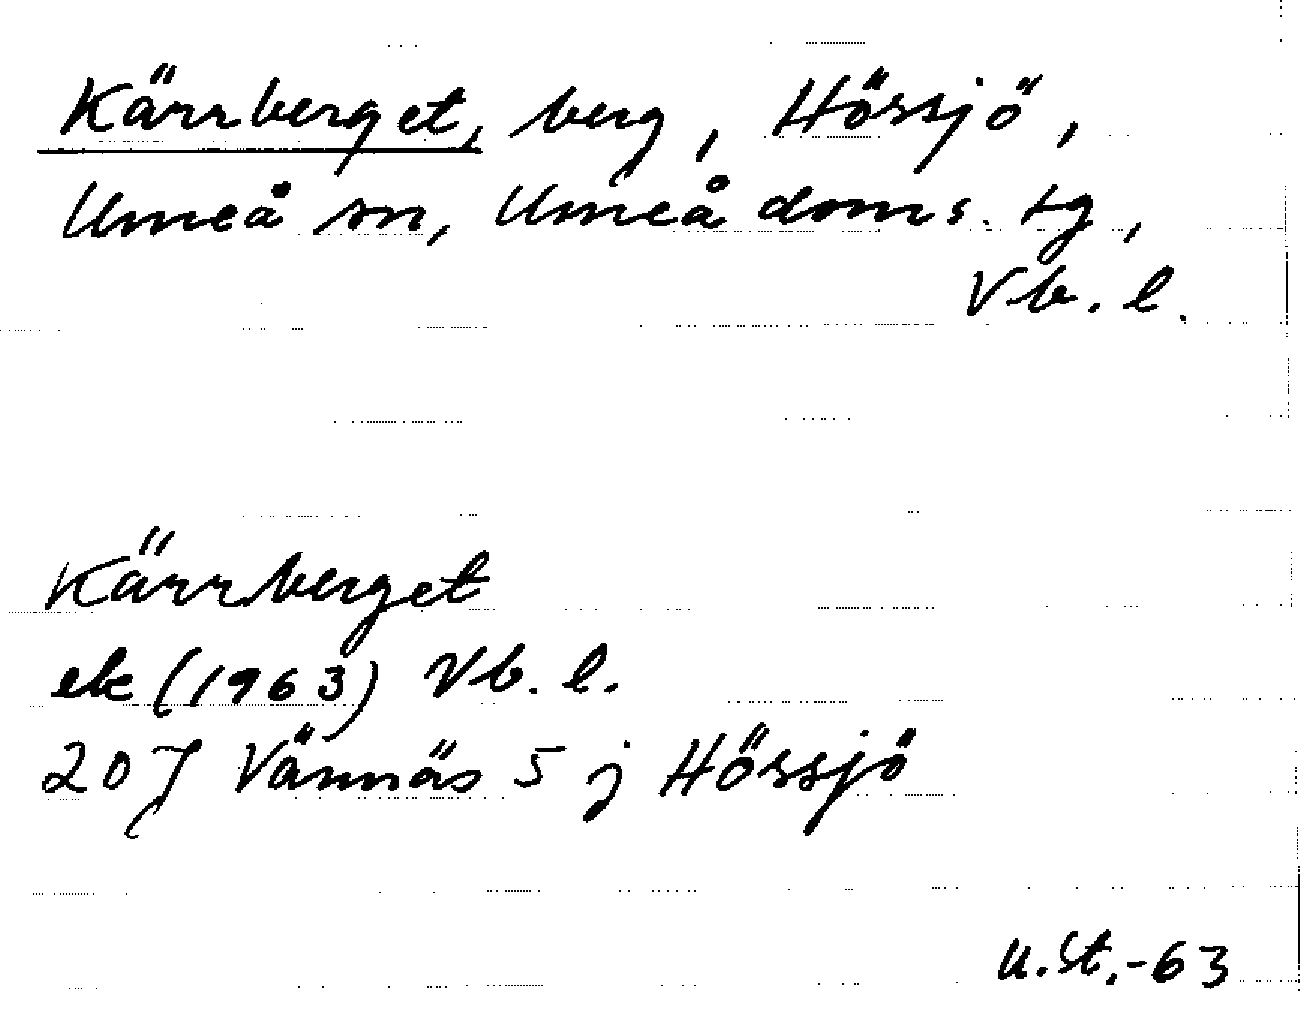 Kärrberget, berg, Hössjö,
Umeå sn, Umeå doms. tg,
Vb. l.
Kärrberget
ek (1963) Vb. l.
20 J Vännäs 5 j Hössjö
U.St.-63